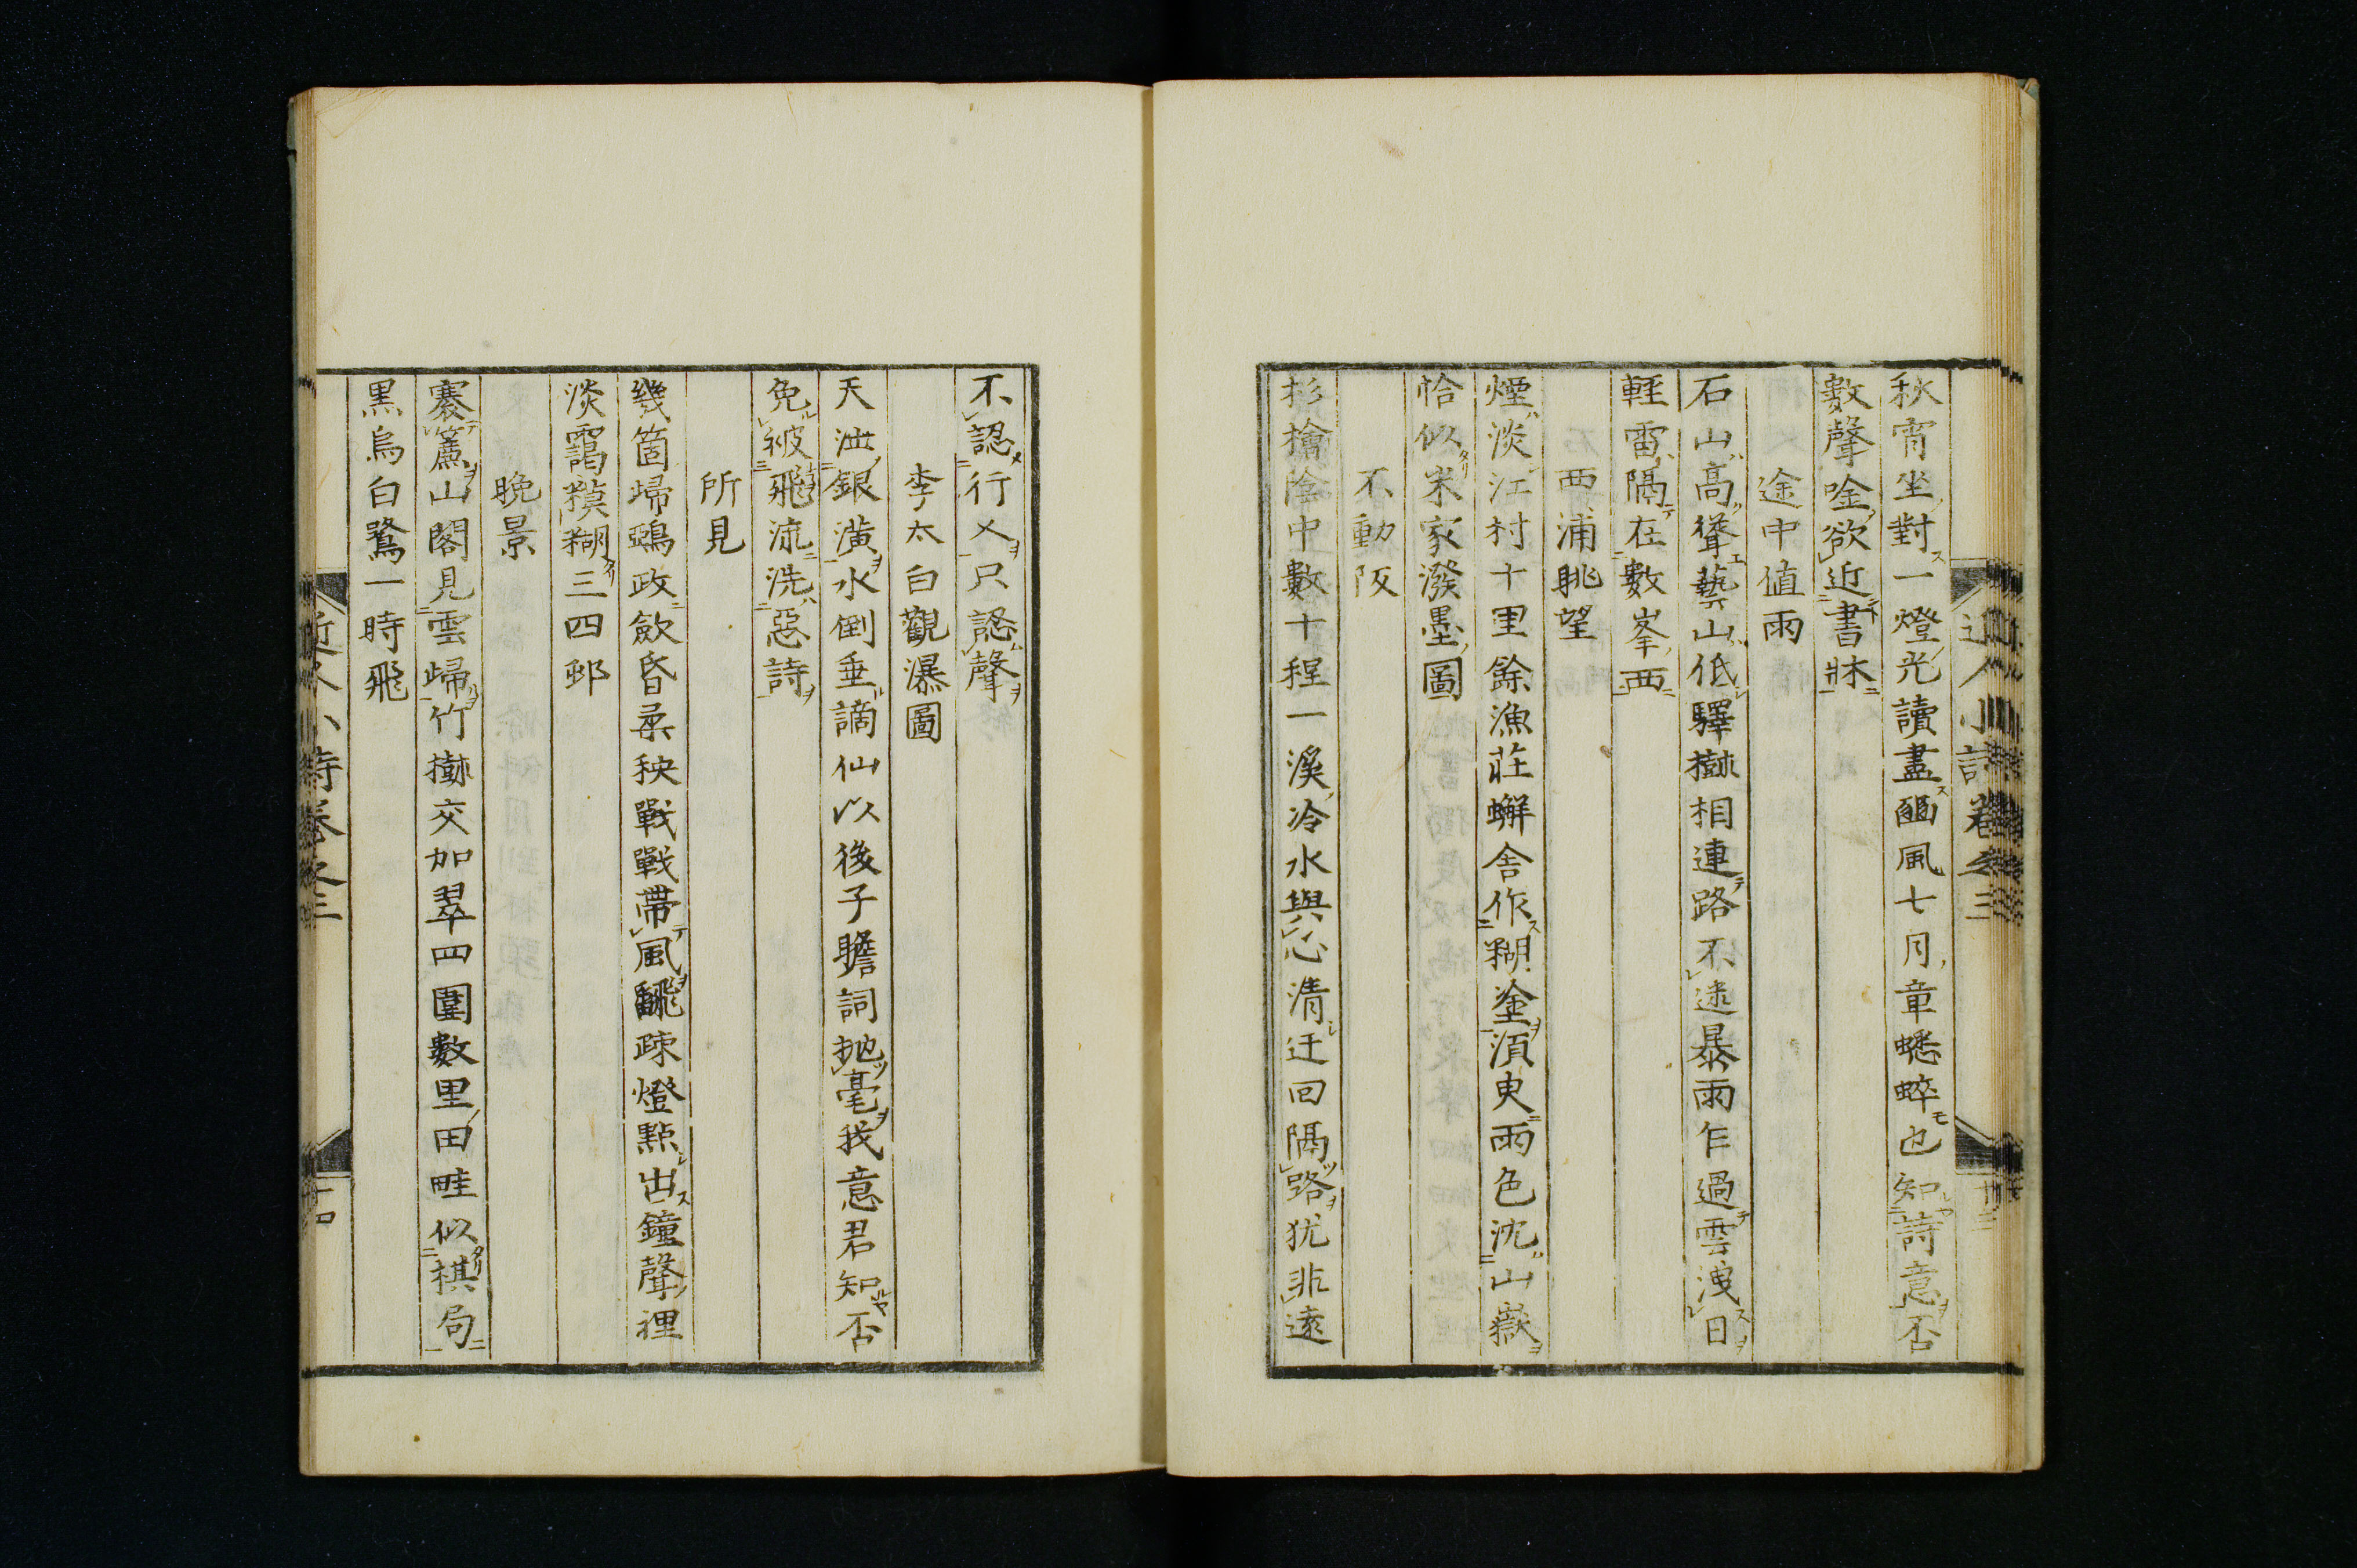 秋宵坐對一燈光讀盡豳風七月章蟋蟀也知詩意否
數聲唫欲近書牀
途中値雨
石山高聳藝山低驛樹相連路不迷暴雨乍過雲洩日
輕雷隔在數峯西
西浦眺望
煙淡江村十里餘漁莊蠏舍作糊塗須臾雨色沈山嶽
恰似米家潑墨圖
不動阪
杉檜陰中數十程一溪冷水與心淸迂回隔路犹非遠
不認行人只認聲
李太白觀瀑圖
天泄銀潢水倒垂謫仙以後子瞻詞抛毫我意君知否
免被飛流洗惡詩
所見
幾箇歸鴉政斂昏柔秧戰戰帶風飜疎燈點出鐘聲裡
淡靄糢糊三四邨
晚景
褰簾山閣見雲歸竹樹交加翠四圍數里田畦似棋局
黒烏白鷺一時飛
近人小詩卷之三